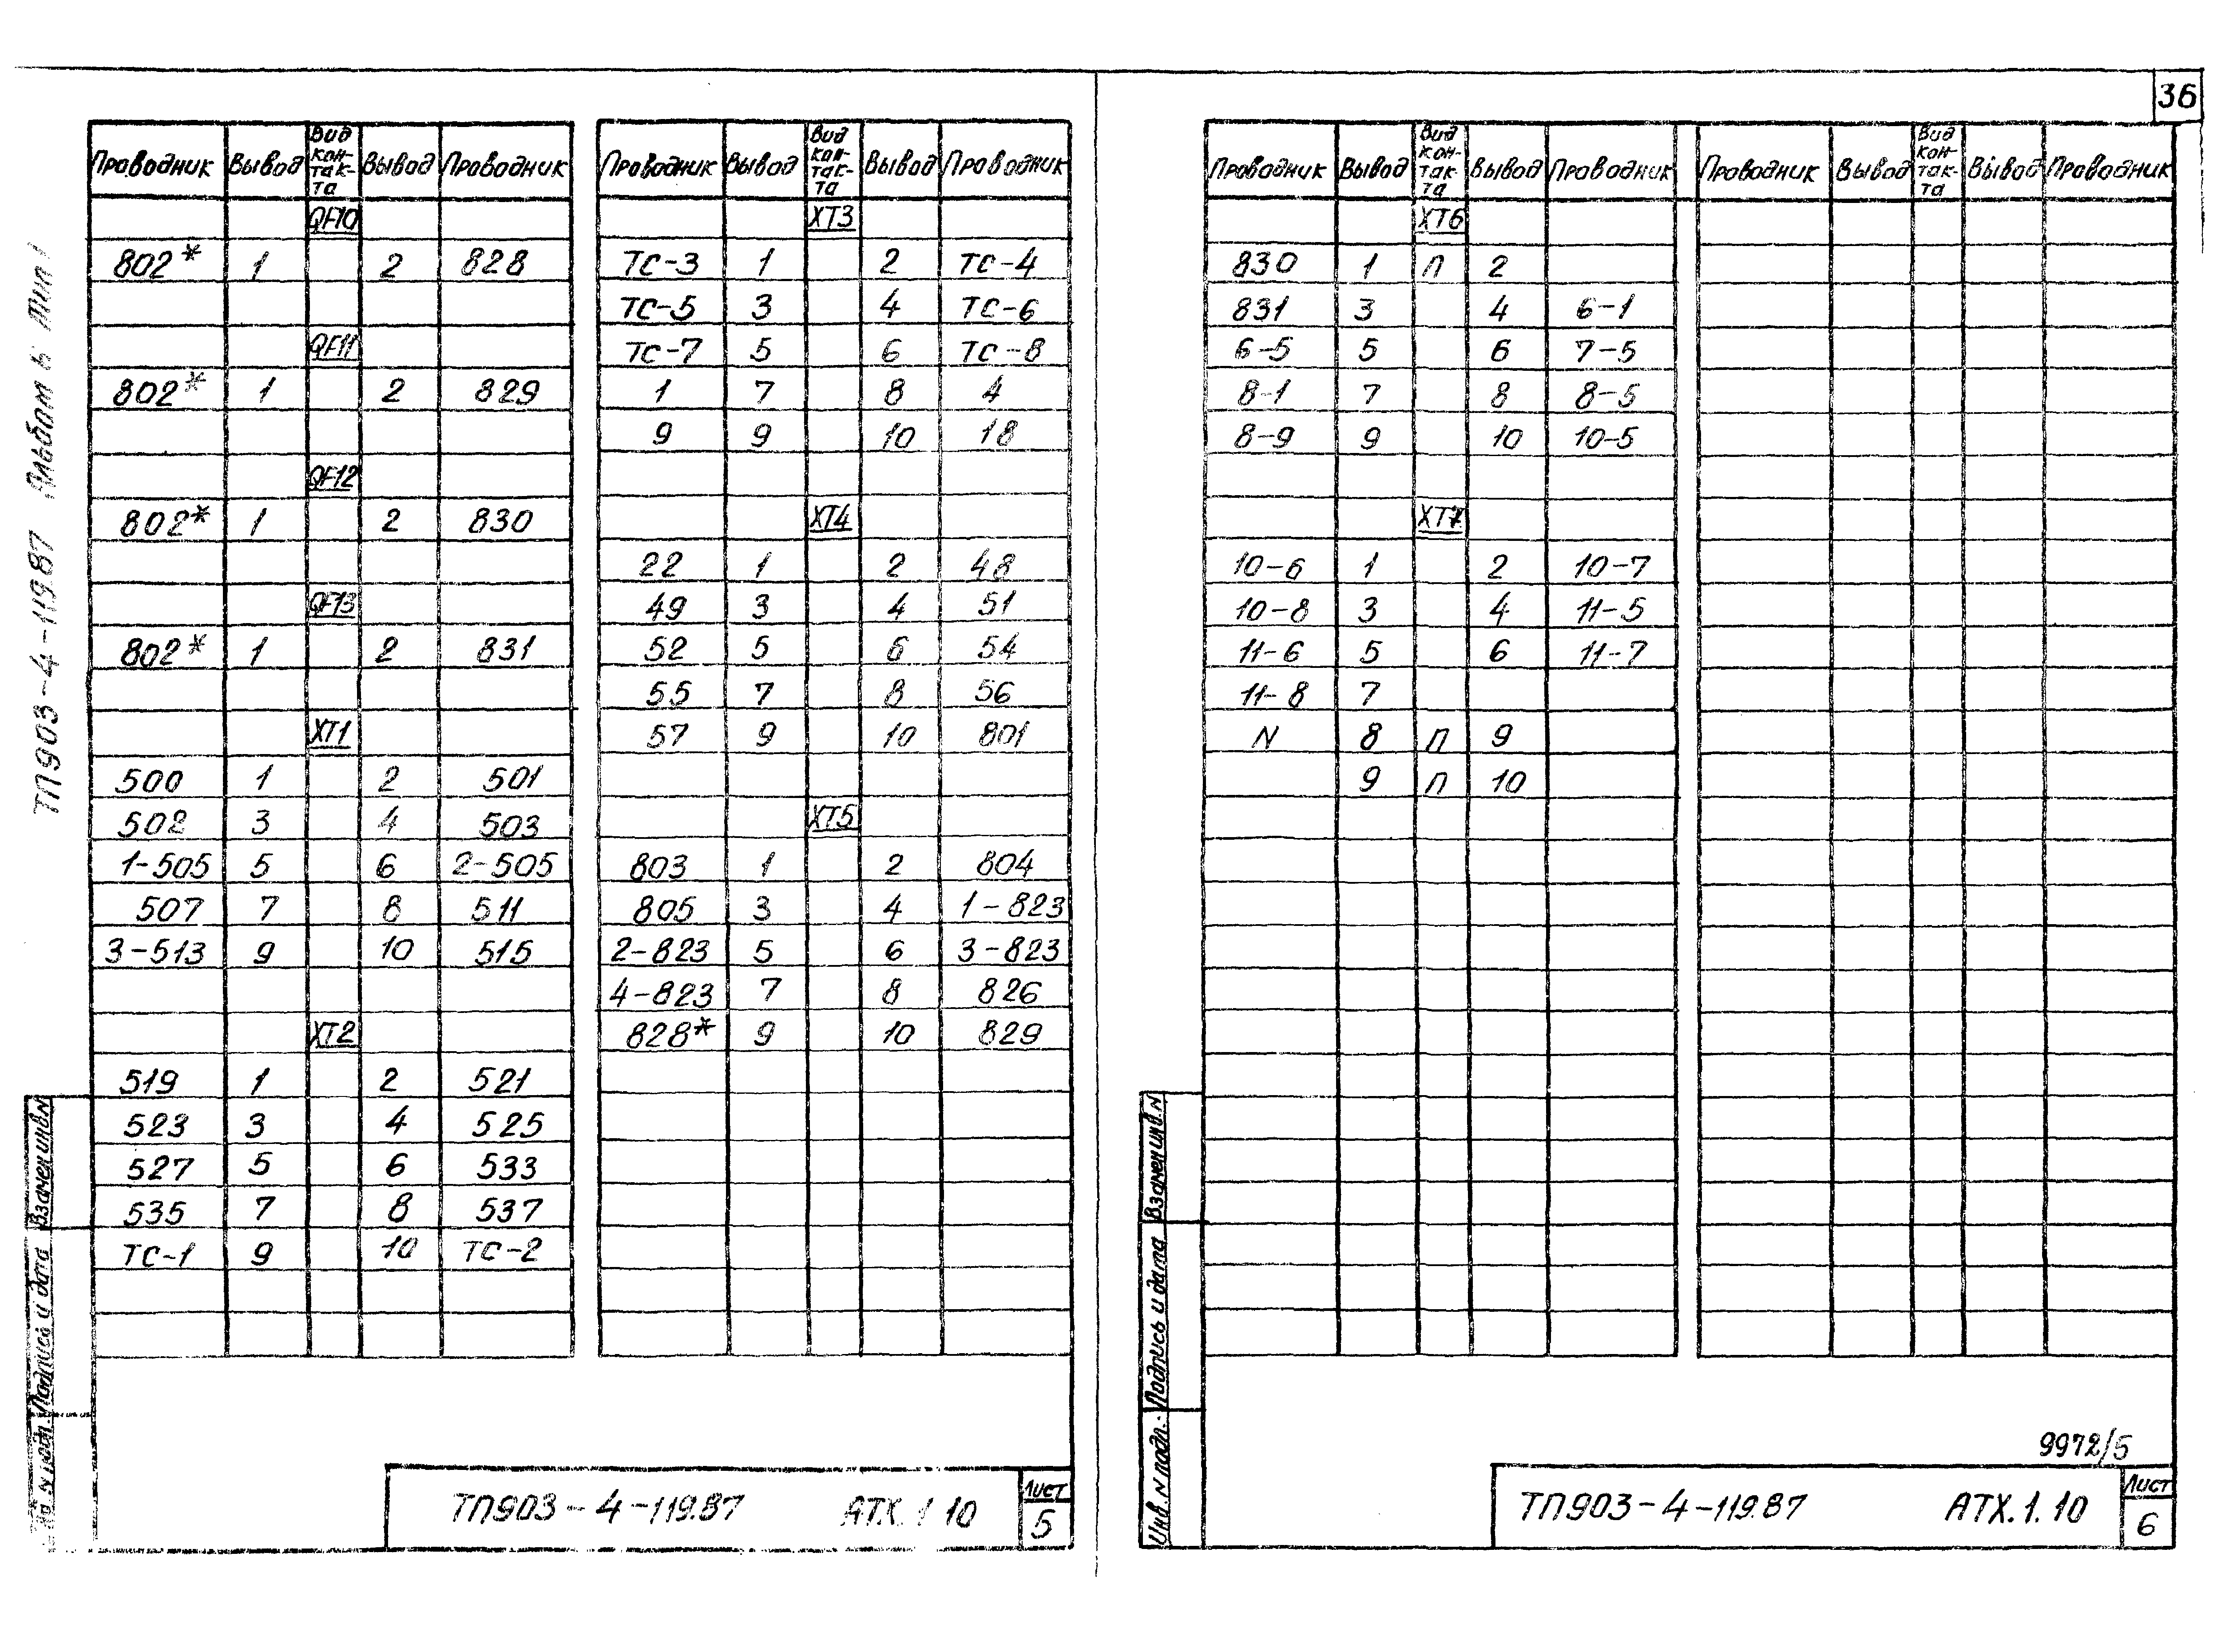 36
ТП903-4-119.87 Альбом 5
Проводник Вывод Вид контакта Вывод Проводник
QF10
802* 1 2 828
QF11
802* 1 2 829
QF12
802* 1 2 830
QF13
802* 1 2 831
XT1
500 1 2 501
502 3 4 503
1-505 5 6 2-505
507 7 8 511
3-513 9 10 515
XT2
519 1 2 521
523 3 4 525
527 5 6 533
535 7 8 537
ТС-1 9 10 ТС-2
Проводник Вывод Вид контакта Вывод Проводник
XT3
ТС-3 1 2 ТС-4
ТС-5 3 4 ТС-6
ТС-7 5 6 ТС-8
1 7 8 4
9 9 10 18
XT4
22 1 2 48
49 3 4 51
52 5 6 54
55 7 8 56
57 9 10 801
XT5
803 1 2 804
805 3 4 1-823
2-823 5 6 3-823
4-823 7 8 826
828* 9 10 829
Взамен инв.N
Подпись и дата
N подл.
ТП903-4-119.87 АТХ.1 10
Лист
5
Проводник Вывод Вид контакта Вывод Проводник
XT6
830 1 П 2
831 3 4 6-1
6-5 5 6 7-5
8-1 7 8 8-5
8-9 9 10 10-5
XT7
10-6 1 2 10-7
10-8 3 4 11-5
11-6 5 6 11-7
11-8 7
N 8 П 9
9 П 10
Проводник Вывод Вид контакта Вывод Проводник
Взамен инв.N
Подпись и дата
Инв. N подл.
9972/5
ТП903-4-119.87 АТХ.1.10
Лист
6